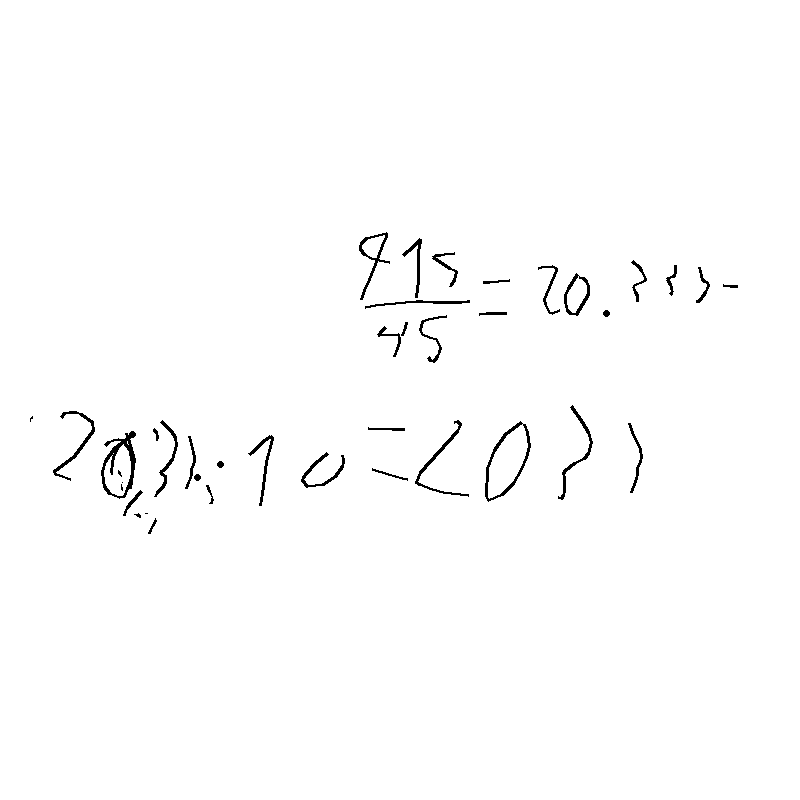 915/45 = 20.333-
2033.·10 = 2033